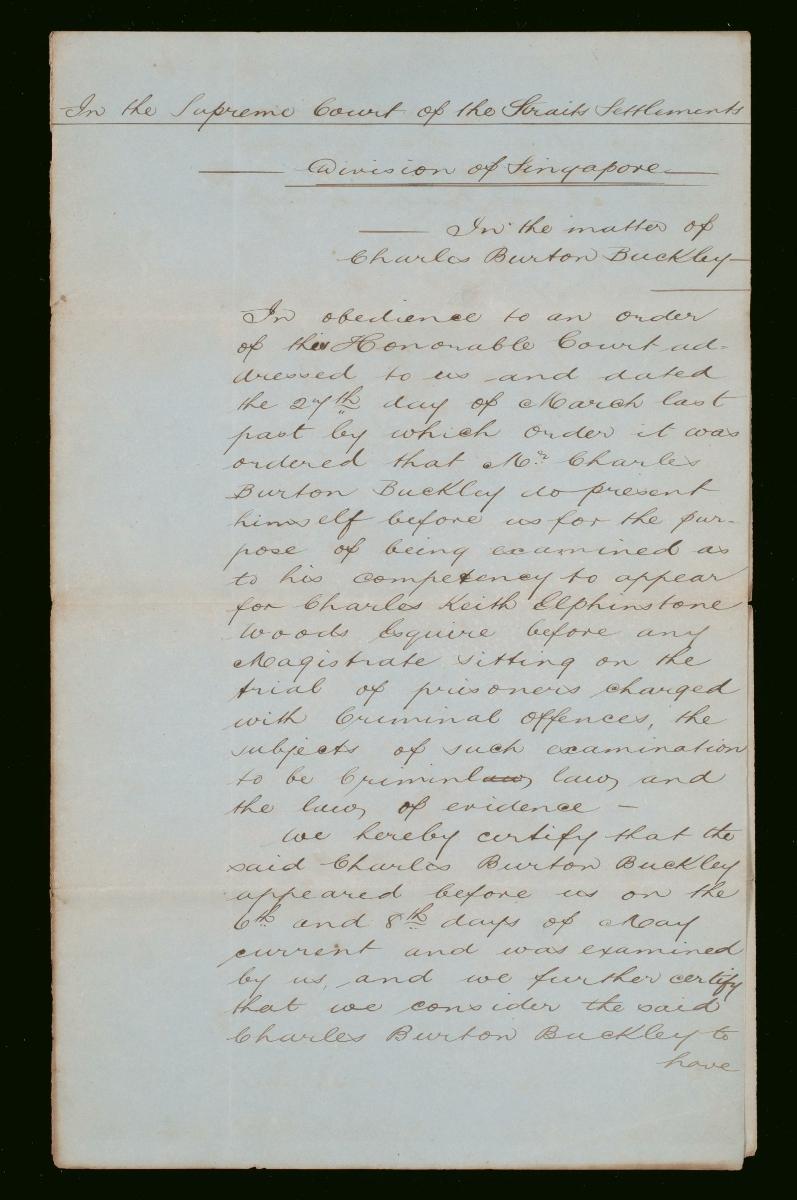 In the Supreme Court of the Straits Settlements
Division of Singapore
In the matter of
Charles Burton Buckley
In obedience to an order
of this Honorable Court ad-
dressed to us and dated
the 27th day of March last
past by which order it was
ordered that Mr. Charles
Burton Buckley do present
himself before us for the pur-
pose of being examined as
to his competency to appear
for Charles Keith Elphinstone
Woods Esquire before any
Magistrate sitting on the
trial of prisoners charged
with Criminal Offences, the
subjects of such examination
to be Criminl law, and
the law, of evidence —
We hereby certify that the
said Charles Burton Buckley
appeared before us on the
6th and 8th days of May
current and was examined
by us, and we further certify
that we consider the said
Charles Burton Buckley to
have